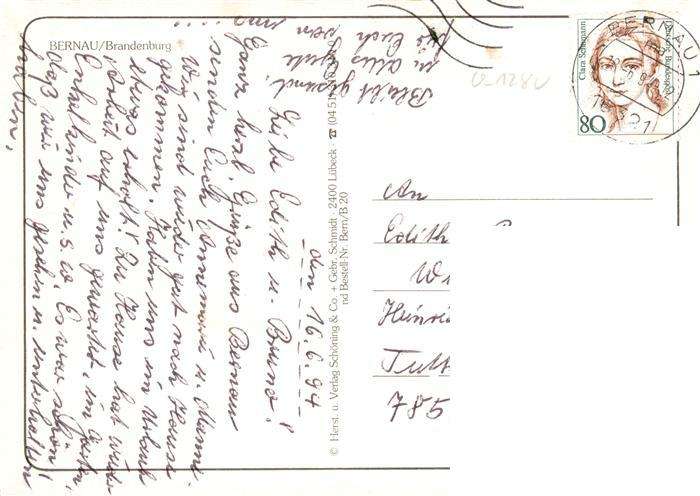 BERNAU/Brandenburg
den 16.6.94
Liebe Edith u. Bruno!
Ganz herzl. Grüße aus Bernau
senden Euch Annemarie u. Manni.
Wir sind wieder gut nach Hause
gekommen. Haben uns im Urlaub
etwas erholt. Zu Hause hat wieder
Arbeit auf uns gewartet, im Garten,
Enkelkinder u.s.w. Es war schön!
Daß wir uns gesehn u. unterhalten
haben,
Bleibt gesund.
u. alles Gute
bis Euch
uns
© Herst. u. Verlag Schöning & Co. + Gebr. Schmidt · 2400 Lübeck · ☎ (04 51)
nd Bestell-Nr. Bern/B 20
Clara Schumann
Deutsche Bundespost
80
BERNAU 1
An
Edith
Wi
Heinri
Tutt
785